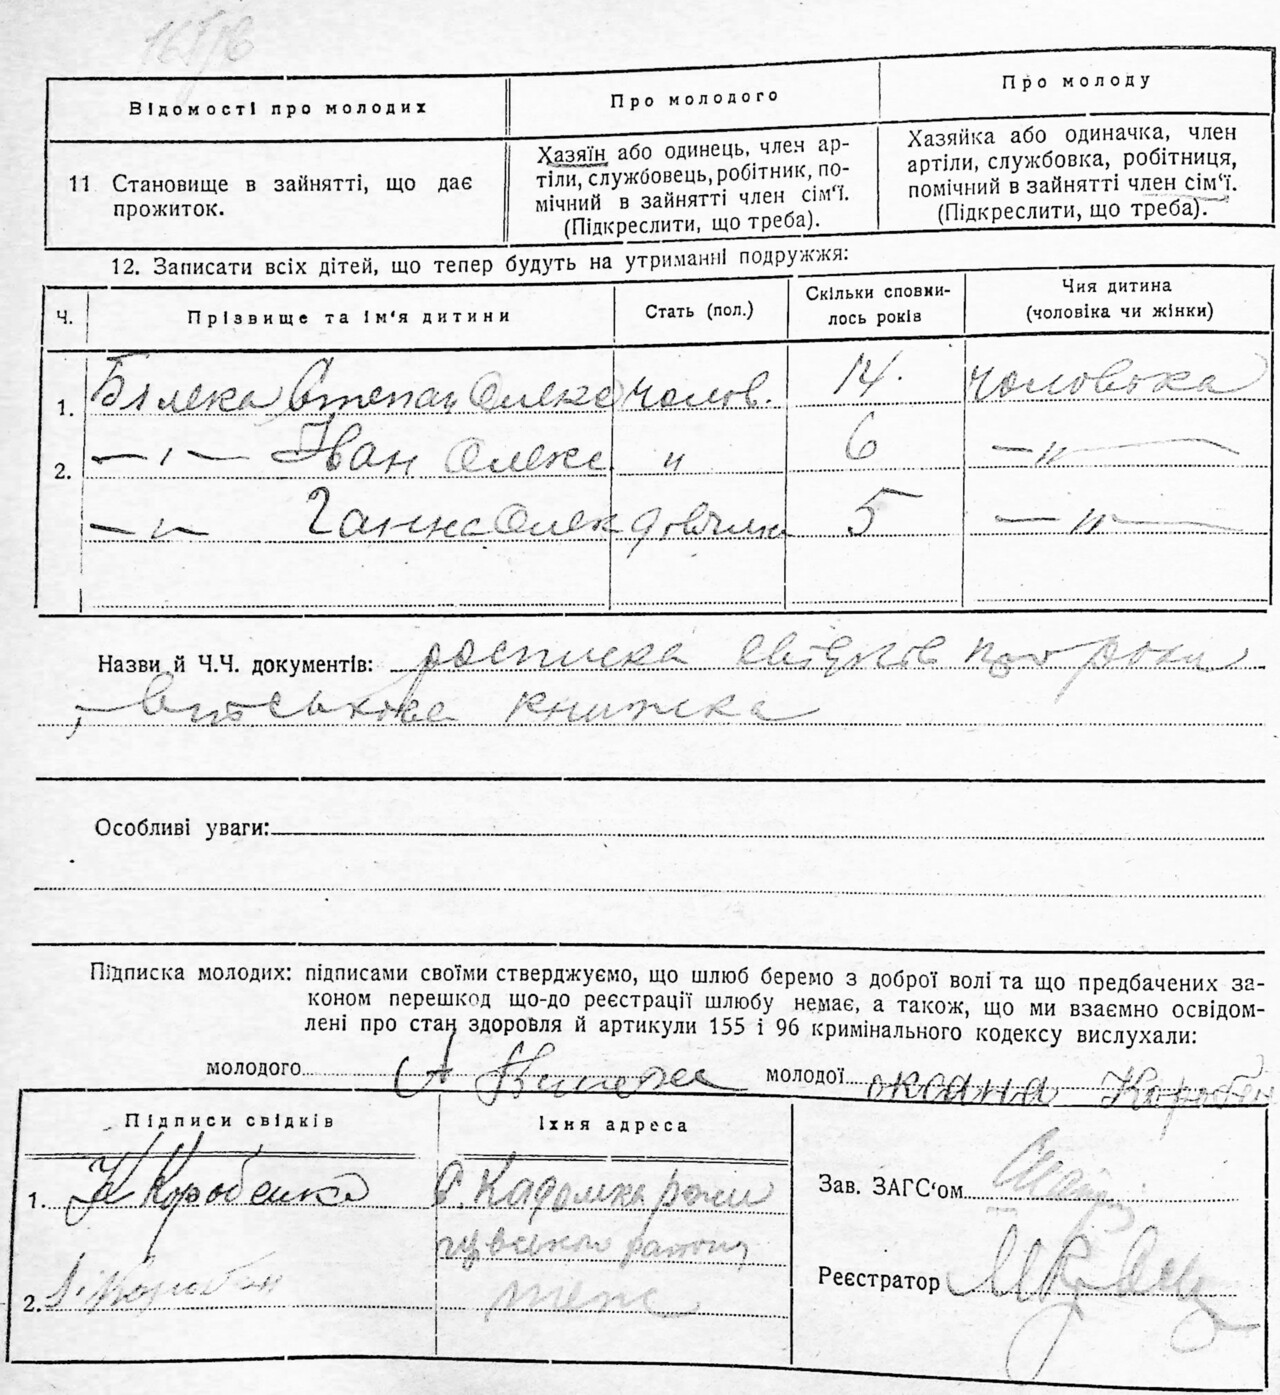 Відомості про молодих
Про молодого
Про молоду
11 Становище в зайнятті, що дає
прожиток.
Хазяїн або одинець, член ар-
тілі, службовець, робітник, по-
мічний в зайнятті член сім‘ї.
(Підкреслити, що треба).
Хазяйка або одиначка, член
артіли, службовка, робітниця,
помічний в зайнятті член сім‘ї.
(Підкреслити, що треба).
12. Записати всіх дітей, що тепер будуть на утриманні подружжя:
Ч.
Прізвище та ім‘я дитини
Стать (пол.)
Скільки сповни-
лось років
Чия дитина
(чоловіка чи жінки)
1. Степан Олекс чолов. 14. чоловіка
2. —„— Іван Олекс „ 6 —„—
—„— Ганна Олек дівчина 5 —„—
Назви й Ч.Ч. документів: росписка свідків про роки
, військова книжка
Особливі уваги:
Підписка молодих: підписами своїми стверджуємо, що шлюб беремо з доброї волі та що предбачених за-
коном перешкод що-до реєстрації шлюбу немає, а також, що ми взаємно освідом-
лені про стан здоровля й артикули 155 і 96 кримінального кодексу вислухали:
молодого А молодої оксана Коробен
Підписи свідків
Їхня адреса
1. Коробенко
С. Кадомка
району
2.
теж
Зав. ЗАГС‘ом
Реєстратор